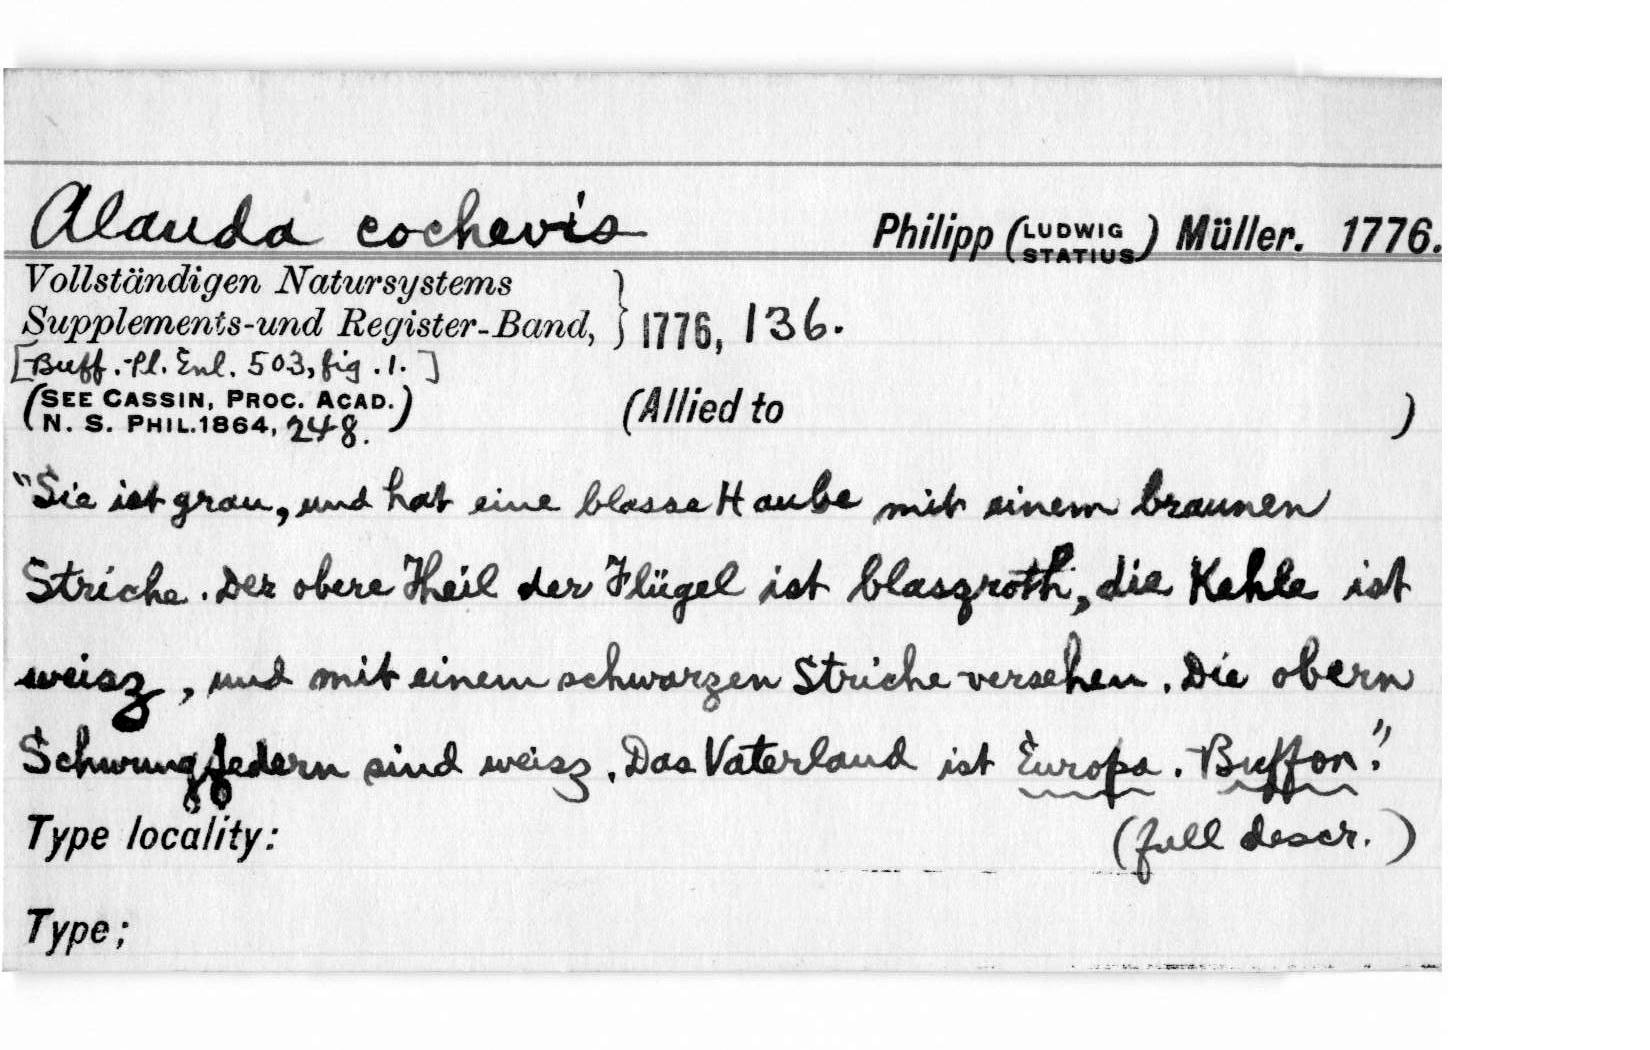 Alauda cochevis Philipp (LUDWIG STATIUS) Müller. 1776.
Vollständigen Natursystems
Supplements-und Register-Band, } 1776, 136.
[Buff. Pl. Enl. 503, fig. 1.]
(SEE CASSIN, PROC. ACAD.
N. S. PHIL. 1864, 248.) (Allied to )
"Sie ist grau, und hat eine blasse Haube mit einem braunen
Striche. Der obere Theil der Flügel ist blaszroth, die Kehle ist
weisz, und mit einem schwarzen Striche versehen. Die obern
Schwungfedern sind weisz. Das Vaterland ist Europa. Buffon."
Type locality: (full descr.)
Type;